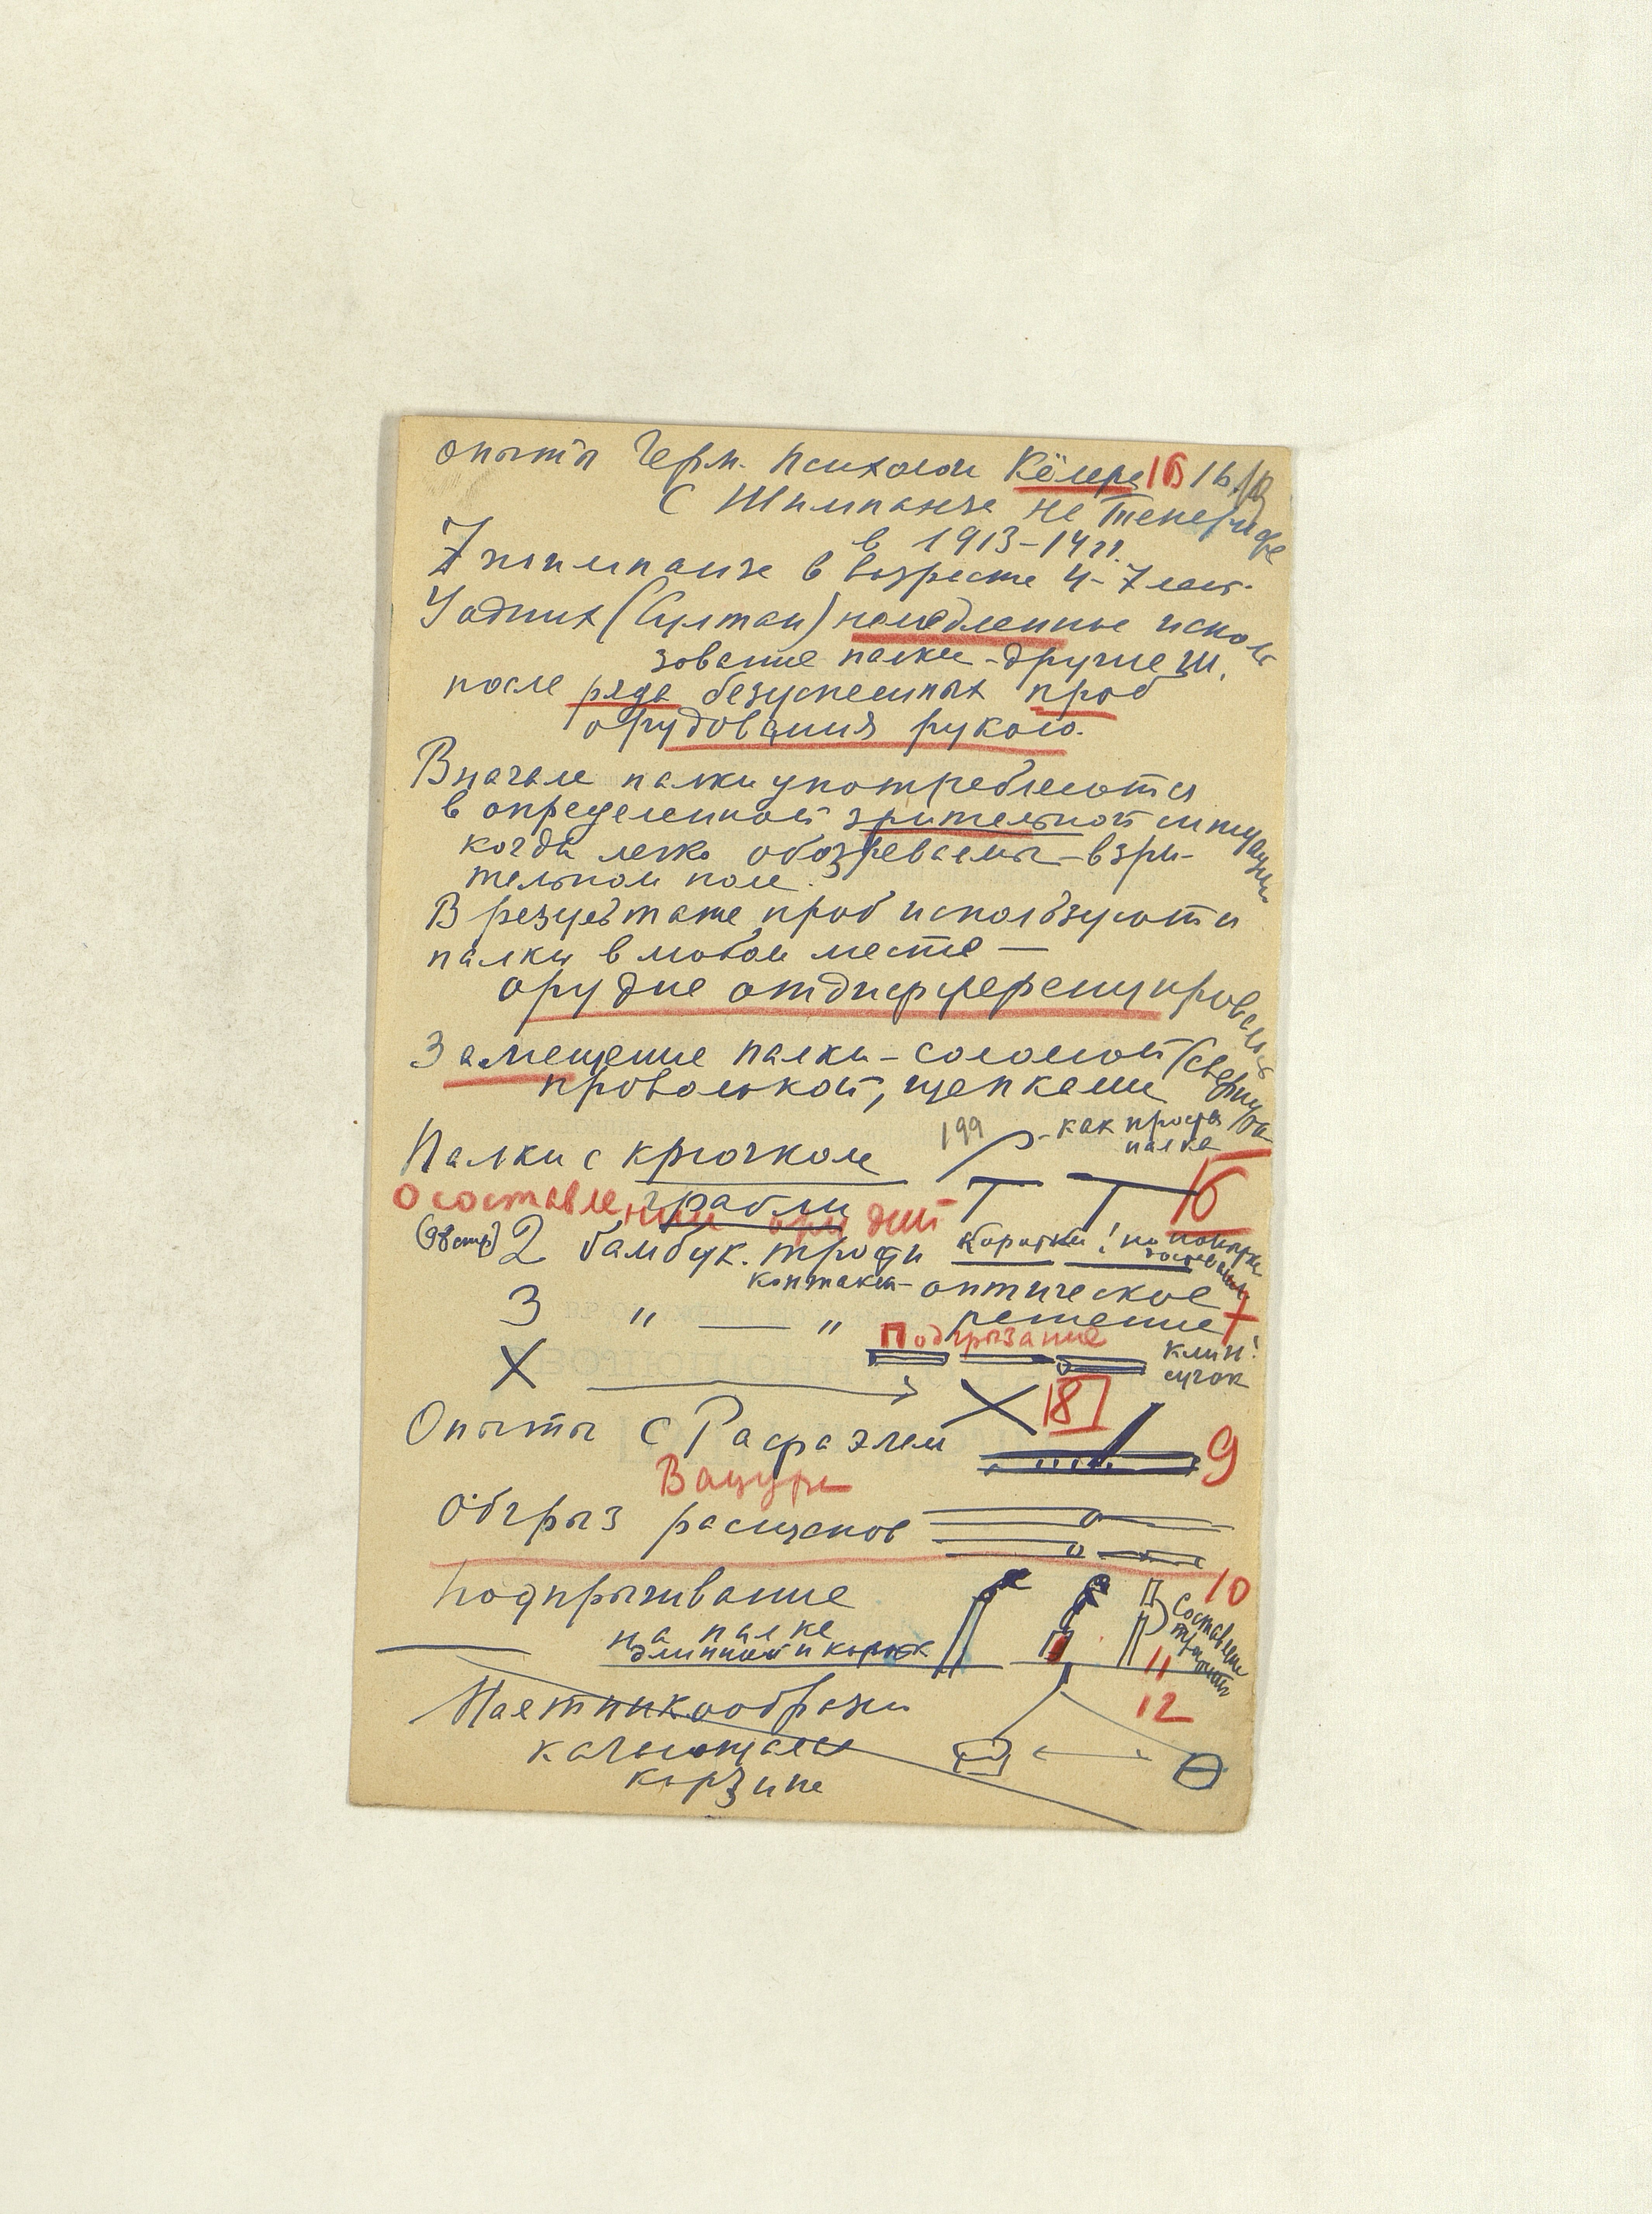 Опыты Герм. психолога Кёлера 16
с Шимпанзе на Тенерифе
в 1913-14 гг.
7 шимпанзе в возрасте 4-7 лет.
У одних (Султан) немедленное исполь
зование палки - другие Ш.
после ряда безуспешных проб
орудования рукою.
Вначале палки употребляются
в определенной зрительной ситуации
когда легко обозреваемы - в зри-
тельном поле.
В результате проб используются
палки в любом месте —
орудие отдифференцировалось
Замещение палки - соломой (сверну
проволокой, щепками
Палки с крючком 199 - как проста
палка
грабли Т Т 6
О составлении орудий
(98 стр) 2 бамбук. трости коротки!
контакт - оптическое
3 " — " решение 7
Подгрызание
клин!
сучок
X X 8
Опыты с Рафаэлем 9
Вацуро
Обгрыз расщепов
Подпрыгивание 10
на палке
длинной и корот
Составление
11
12
Маятникообразн
качающаяся
корзине